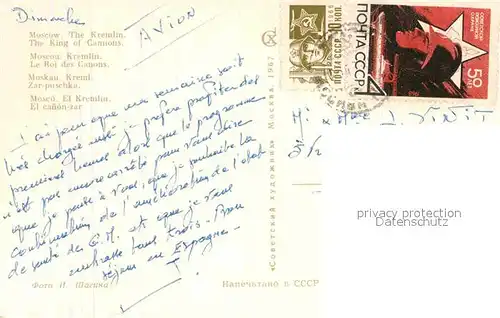 Dimanche
AVION
Moscow. The Kremlin.
The King of Cannons.
Moscou. Kremlin.
Le Roi des Canons.
Moskau. Kreml.
Zar-puschka.
Moscú. El Kremlin.
El cañón-zar
J'ai peur que ma semaine soit
très chargée aussi je préfère profiter des
premières heures alors que le programme
n'est pas encore arrêté pour vous dire
que je pense à vous, que je souhaite la
continuation de l'amélioration de l'état
de santé des G.M. et que je vous
embrasse tous trois. Bon
séjour en Espagne.
Фото Н. Шагина
Напечатано в СССР
«Советский художник» Москва. 1967
ПОЧТА СССР
ПОЧТА СССР
СОВЕТСКОЙ
ПОЖАРНОЙ
ОХРАНЕ
50
ЛЕТ
Mr & Mme
privacy protection
oldthing.de